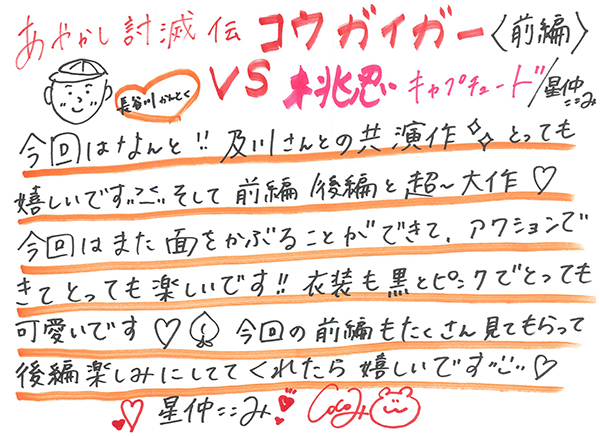 あやかし討滅伝 コウガイガー〈前編〉
VS 桃忍 キャプチュード/星仲ここみ
長谷川かんとく
今回はなんと!! 及川さんとの共演作✨ とっても
嬉しいです そして 前編/後編と超〜大作♡
今回はまた面をかぶることができて、アクションで
きてとっても楽しいです!! 衣装も黒とピンクでとっても
可愛いです♡ 今回の前編もたくさん見てもらって
後編楽しみにしててくれたら嬉しいです♡
♡ 星仲ここみ♡ Cocomi